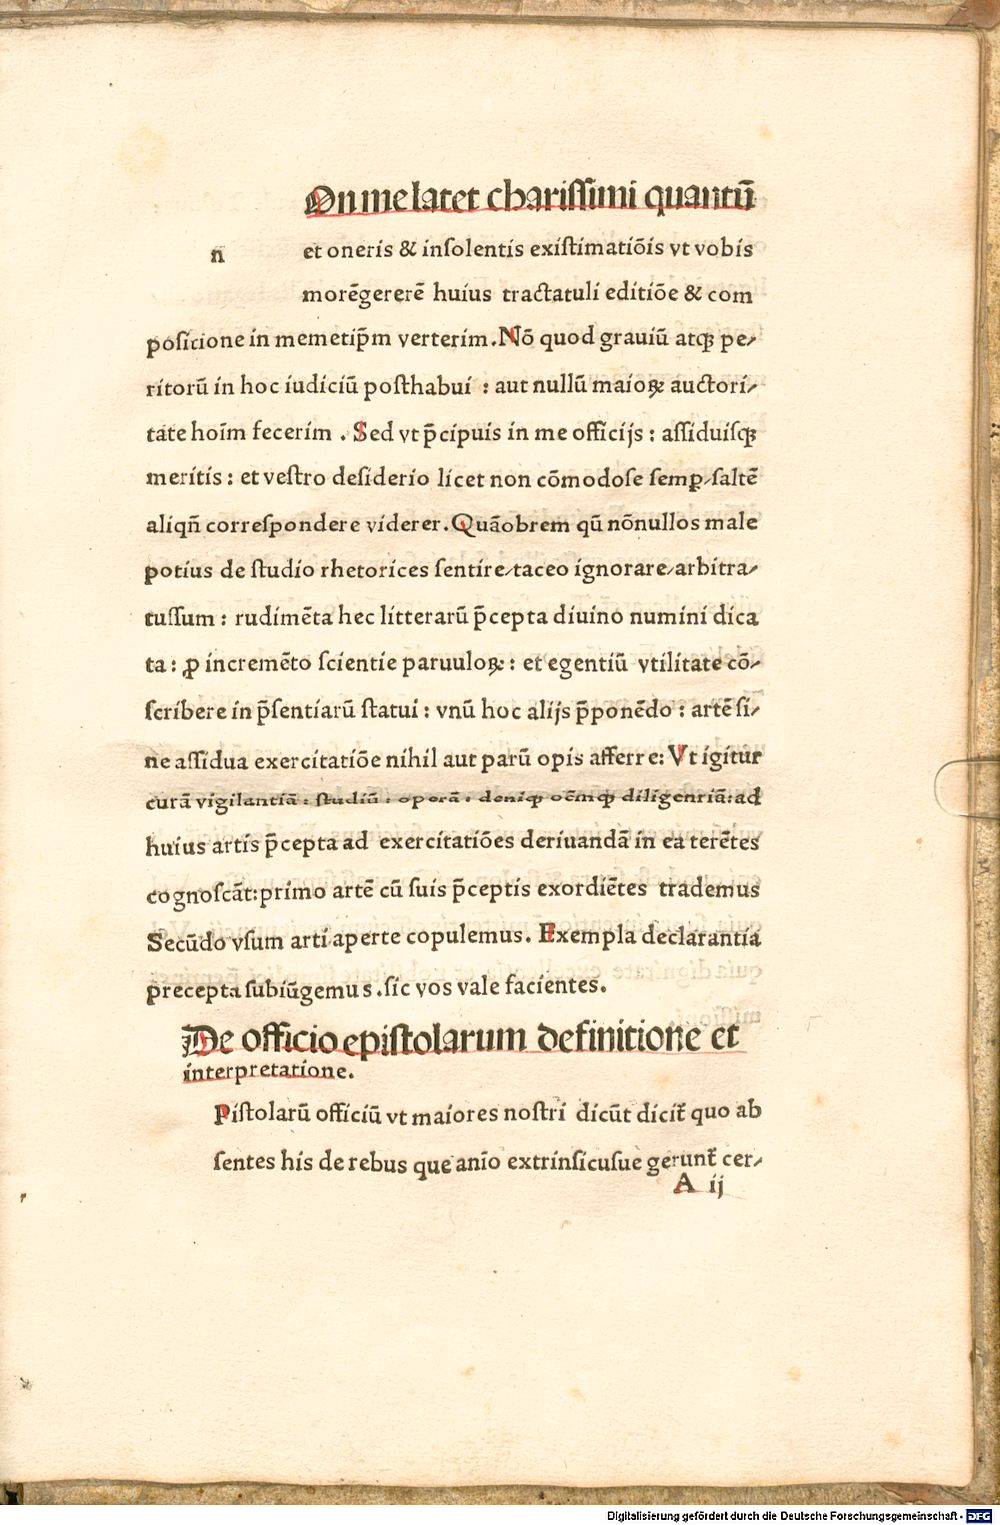 On me latet charissimi quantū
n et oneris & insolentis existimatiōis vt vobis
morēgererē huius tractatuli editiōe & com
positione in memetip̄m verterim. Nō quod grauiū atqꝫ pe⸗
ritorū in hoc iudiciū posthabui : aut nullū maioꝝ auctori⸗
tate hoīm fecerim . Sed vt p̄cipuis in me officijs : assiduisqꝫ
meritis : et vestro desiderio licet non cōmodose semꝑ/saltē
aliqn̄ correspondere viderer. Quāobrem qū nōnullos male
potius de studio rhetorices sentire/taceo ignorare/arbitra⸗
tussum : rudimēta hec litterarū p̄cepta diuino numini dica
ta : ꝓ incremēto scientie paruuloꝝ : et egentiū vtilitate cō⸗
scribere in p̄sentiarū statui : vnū hoc alijs p̄ponēdo : artē si⸗
ne assidua exercitatiōe nihil aut parū opis afferre: Vt igitur
curā vigilantiā : studiū : operā : deniqꝫ oēmqꝫ diligentiā: ad
huius artis p̄cepta ad exercitatiōes deriuandā in ea terētes
cognoscāt: primo artē cū suis p̄ceptis exordiētes trademus
Secūdo vsum arti aperte copulemus. Exempla declarantia
precepta subiūgemus. sic vos vale facientes.
De officio epistolarum definitione et
interpretatione.
Pistolarū officiū vt maiores nostri dicūt dicit̄ quo ab
sentes his de rebus que anīo extrinsicusue gerunt̄ cer⸗
A ij
Digitalisierung gefördert durch die Deutsche Forschungsgemeinschaft - DFG